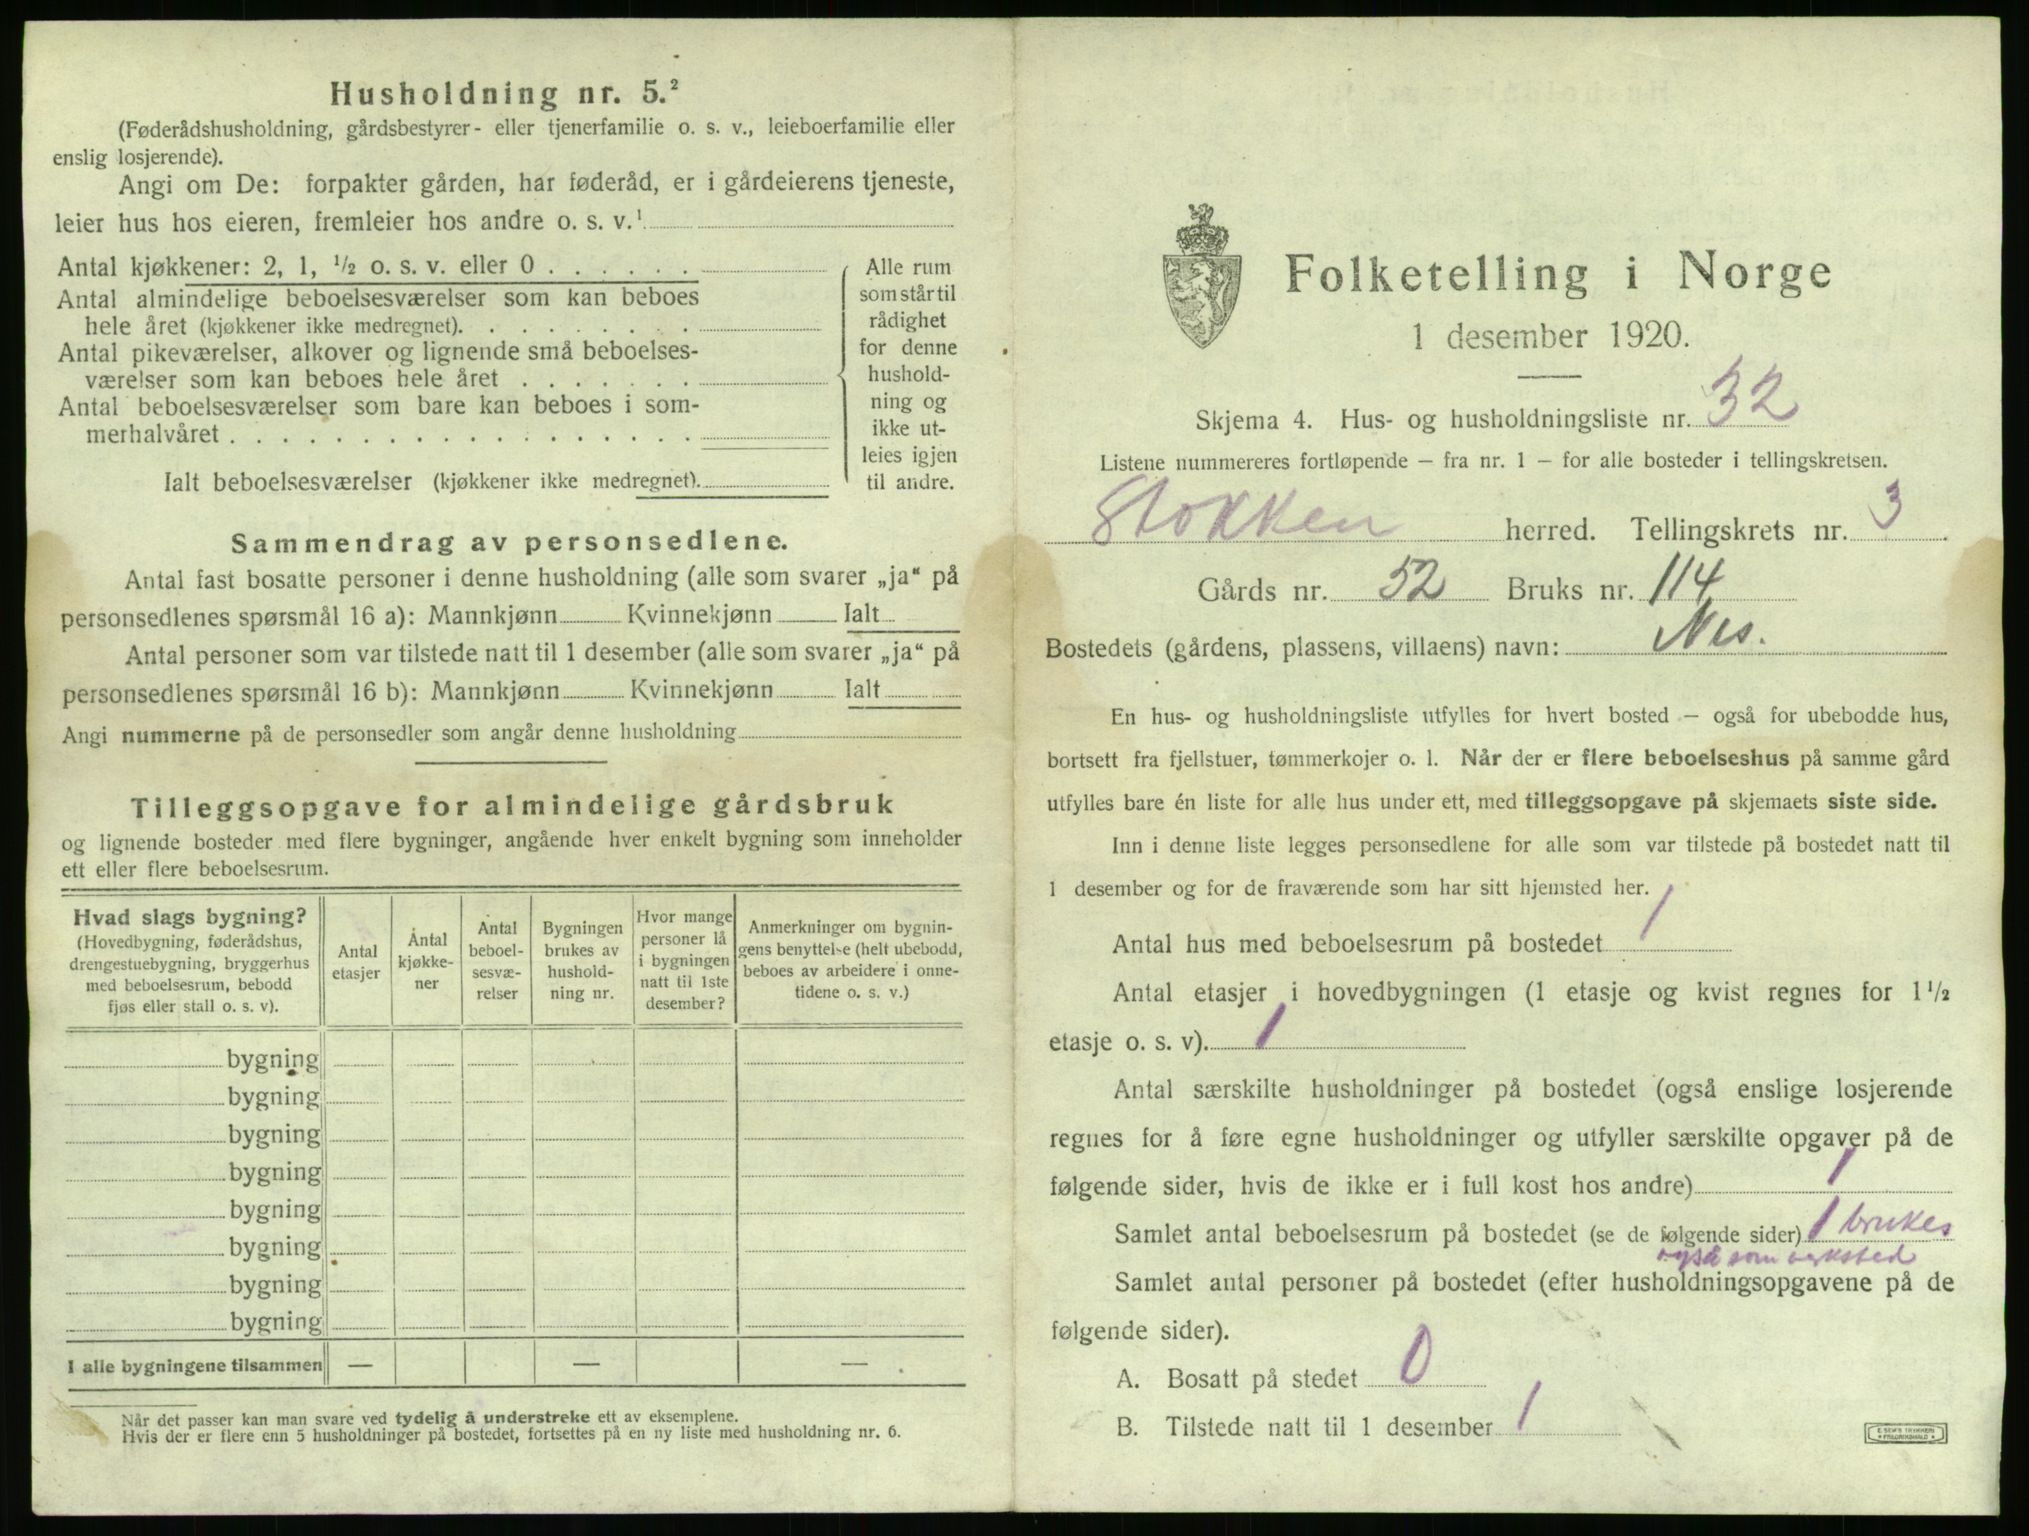 Husholdning nr. 5.²
(Føderådshusholdning, gårdsbestyrer- eller tjenerfamilie o. s. v., leieboerfamilie eller
enslig losjerende).
Angi om De: forpakter gården, har føderåd, er i gårdeierens tjeneste,
leier hus hos eieren, fremleier hos andre o. s. v.¹
Antal kjøkkener: 2, 1, ½ o. s. v. eller 0 . . . . . .
Antal almindelige beboelsesværelser som kan beboes
hele året (kjøkkener ikke medregnet). . . . . . . . .
Antal pikeværelser, alkover og lignende små beboelses-
værelser som kan beboes hele året . . . . . . .
Antal beboelsesværelser som bare kan beboes i som-
merhalvåret . . . . . . . . . . . . . . . . . .
Ialt beboelsesværelser (kjøkkener ikke medregnet).
Alle rum
som står til
rådighet
for denne
hushold-
ning og
ikke ut-
leies igjen
til andre.
Sammendrag av personsedlene.
Antal fast bosatte personer i denne husholdning (alle som svarer „ja“ på
personsedlenes spørsmål 16 a): Mannkjønn Kvinnekjønn Ialt
Antal personer som var tilstede natt til 1 desember (alle som svarer „ja“ på
personsedlenes spørsmål 16 b): Mannkjønn Kvinnekjønn Ialt
Angi nummerne på de personsedler som angår denne husholdning
Tilleggsopgave for almindelige gårdsbruk
og lignende bosteder med flere bygninger, angående hver enkelt bygning som inneholder
ett eller flere beboelsesrum.
Hvad slags bygning?
(Hovedbygning, føderådshus,
drengestuebygning, bryggerhus
med beboelsesrum, bebodd
fjøs eller stall o. s. v).
Antal
etasjer
Antal
kjøkke-
ner
Antal
beboel-
sesvæ-
relser
Bygningen
brukes av
hushold-
ning nr.
Hvor mange
personer lå
i bygningen
natt til 1ste
desember?
Anmerkninger om bygnin-
gens benyttelse (helt ubebodd,
beboes av arbeidere i onne-
tidene o. s. v.)
bygning
bygning
bygning
bygning
bygning
bygning
bygning
bygning
I alle bygningene tilsammen — — —
Når det passer kan man svare ved tydelig å understreke ett av eksemplene.
Hvis der er flere enn 5 husholdninger på bostedet, fortsettes på en ny liste med husholdning nr. 6.
Folketelling i Norge
1 desember 1920.
Skjema 4. Hus- og husholdningsliste nr. 32
Listene nummereres fortløpende — fra nr. 1 — for alle bosteder i tellingskretsen.
Stokken herred. Tellingskrets nr. 3
Gårds nr. 52 Bruks nr. 114
Bostedets (gårdens, plassens, villaens) navn: Nes.
En hus- og husholdningsliste utfylles for hvert bosted — også for ubebodde hus,
bortsett fra fjellstuer, tømmerkojer o. l. Når der er flere beboelseshus på samme gård
utfylles bare én liste for alle hus under ett, med tilleggsopgave på skjemaets siste side.
Inn i denne liste legges personsedlene for alle som var tilstede på bostedet natt til
1 desember og for de fraværende som har sitt hjemsted her.
Antal hus med beboelsesrum på bostedet 1
Antal etasjer i hovedbygningen (1 etasje og kvist regnes for 1½
etasje o. s. v). 1
Antal særskilte husholdninger på bostedet (også enslige losjerende
regnes for å føre egne husholdninger og utfyller særskilte opgaver på de
følgende sider, hvis de ikke er i full kost hos andre) 1
Samlet antal beboelsesrum på bostedet (se de følgende sider) 1 brukes
også som verksted
Samlet antal personer på bostedet (efter husholdningsopgavene på de
følgende sider).
A. Bosatt på stedet 0
B. Tilstede natt til 1 desember 1